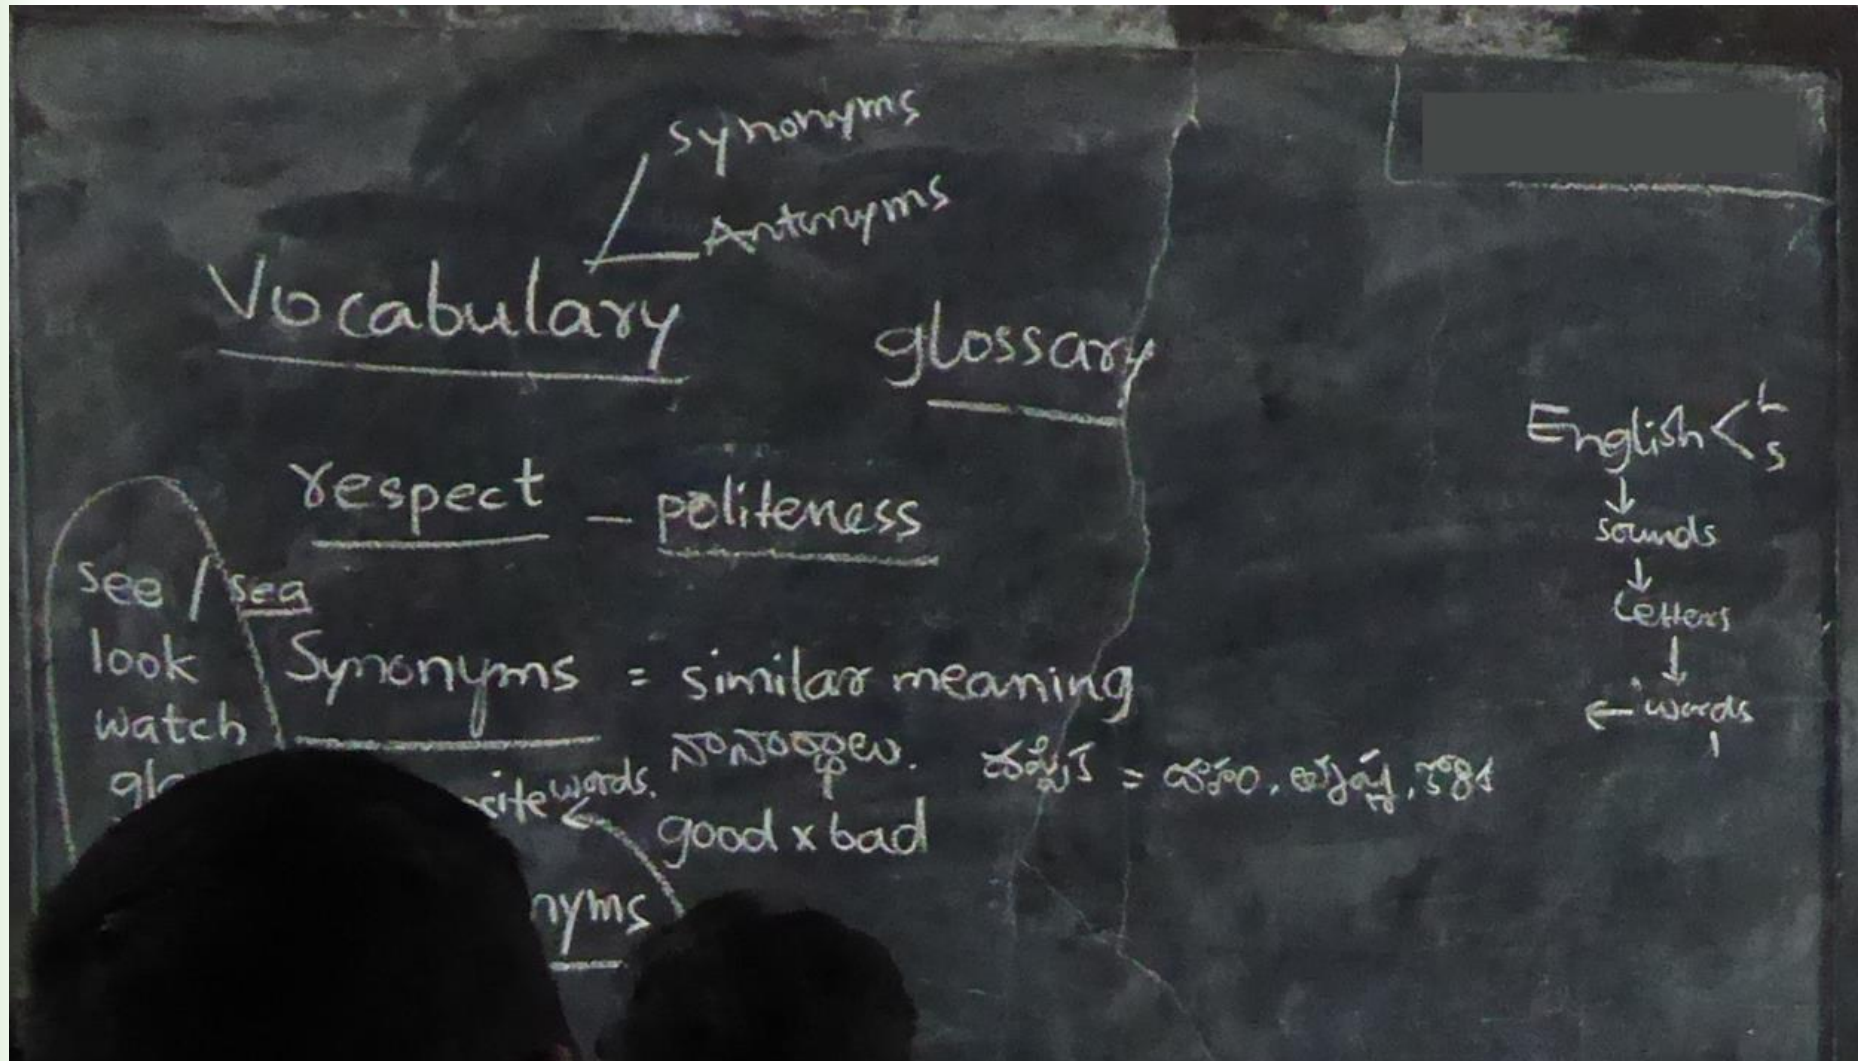 Synonyms
Antonyms
Vocabulary
glossary
respect – politeness
see / sea
look
watch
Synonyms = similar meaning
నానార్థాలు.
words.
good x bad
English < L
S
↓
sounds
↓
Letters
↓
← words